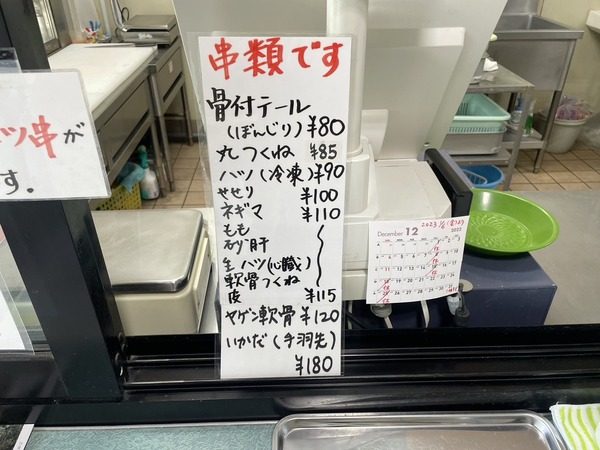 串類です
骨付テール
(ぼんじり) ¥80
丸つくね ¥85
ハツ(冷凍) ¥90
せせり ¥100
ネギマ ¥110
もも
砂肝
生ハツ(心臓)
軟骨つくね
皮 ¥115
ヤゲン軟骨 ¥120
いかだ(手羽先)
¥180
ツ串が
す.
December 12 2022